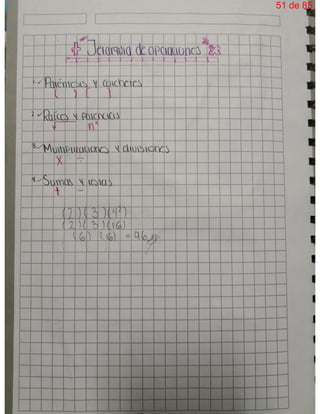 51 de 85
Jerarquia de operaciones
1.- Paréntesis y corchetes
( ) [ ]
2.- Raíces y potencias
√ n²
3.- Multiplicaciones y divisiones
x ÷
4.- Sumas y restas
+ -
(2)(3)(4²)
(2)(3)(16)
(6) (16) = 96